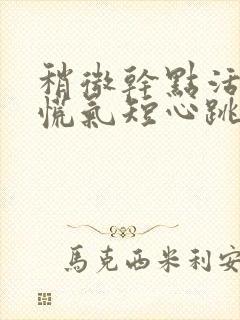 稍微幹點活
慌氣短心跳
馬克西米利安